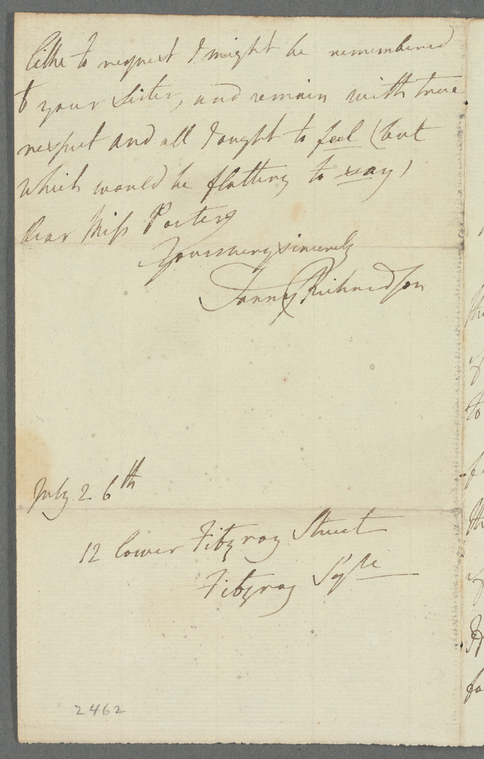 to request I might be remembered
to your Sister, and remain with true
respect and all I ought to feel (but
which would be flattery to say)
dear Miss Porter,
Yours very sincerely
Fanny Richardson
July 26th
12 lower Fitzroy Street
Fitzroy Sqre
2462